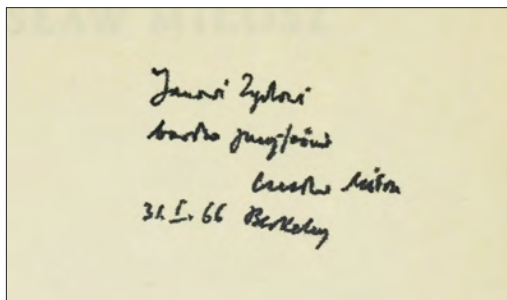 Janowi Zychowi
bardzo przyjaźnie
Czesław Miłosz
31.I.66 Berkeley